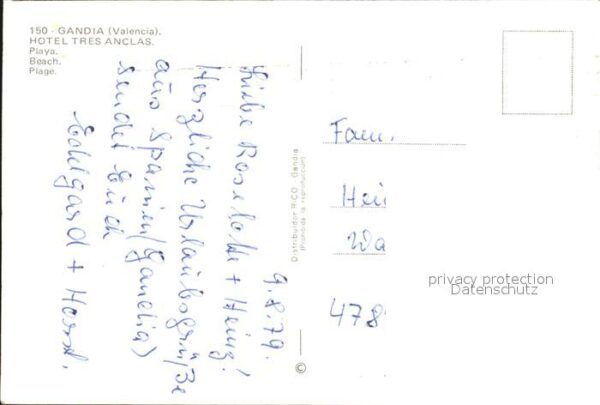 150 - GANDIA (Valencia).
HOTEL TRES ANCLAS.
Playa.
Beach.
Plage.
9.8.79.
Liebe Roselotte + Heinz!
Herzliche Urlaubsgrüße
aus Spanien (Gandia)
sendet Euch
Edelgard + Horst.
Distribuidor RICO - Gandia
(Prohibida la reproducción)
©
Fam.
Hei
Wa
478
privacy protection
Datenschutz